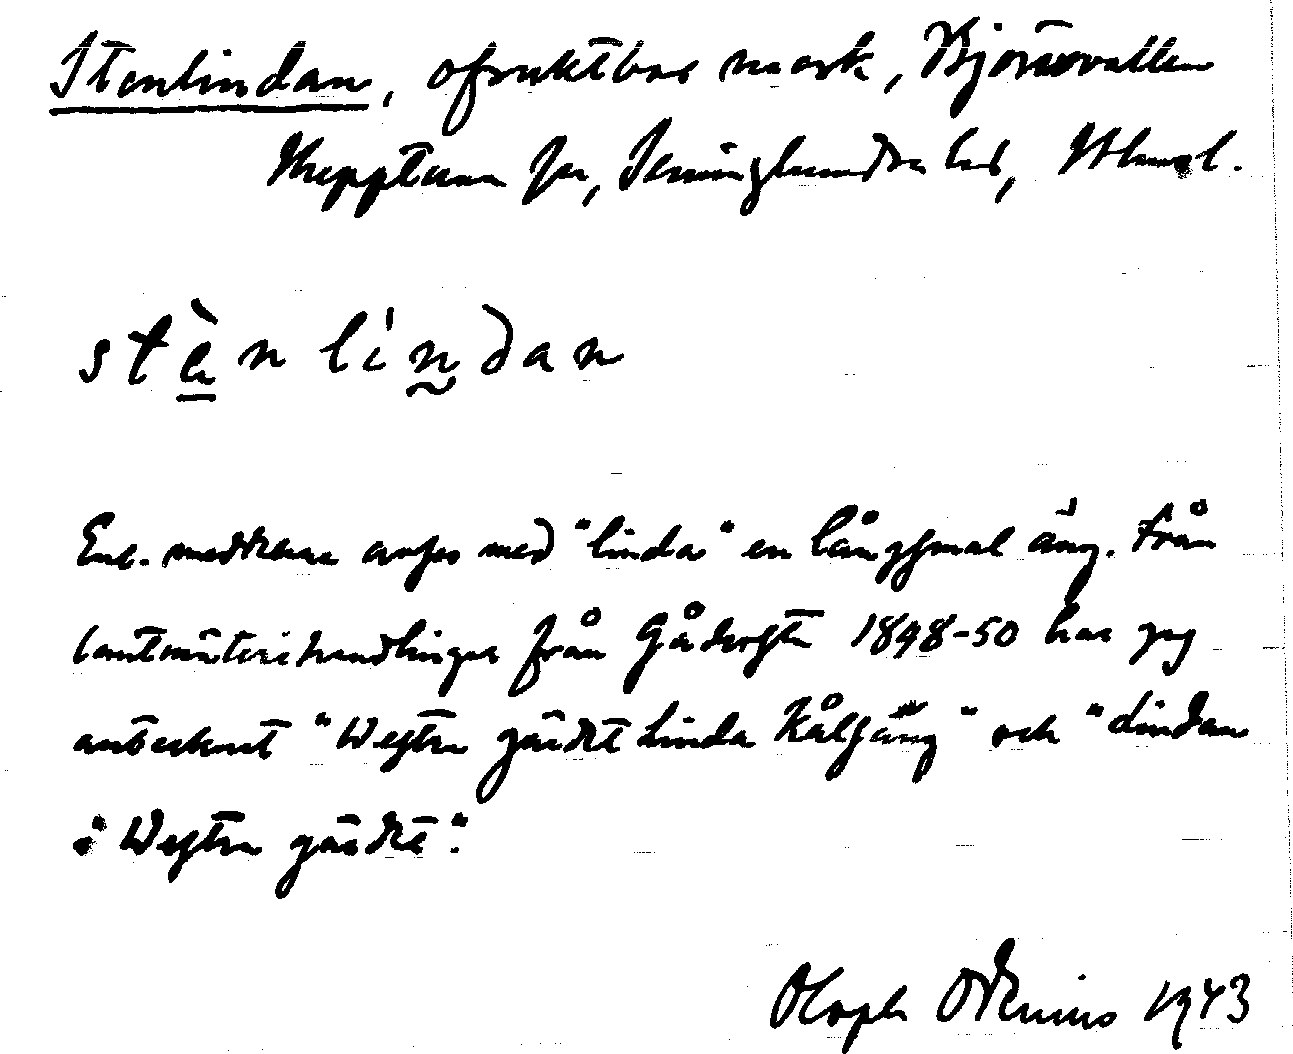 Stenlindan, ofruktbar mark, Björnvallen
Krepptuna sn, Seminghundra hd, Uhml.
stènlindan
Enl. meddelare avses med "linda" en långsmal äng. Från
lantmäterihandlingar från Gådersta 1848-50 har jag
antecknat "Westra gärdet Linda Kålsäng" och "Lindan
i Westra gärdet".
Oloph Odenius 1943